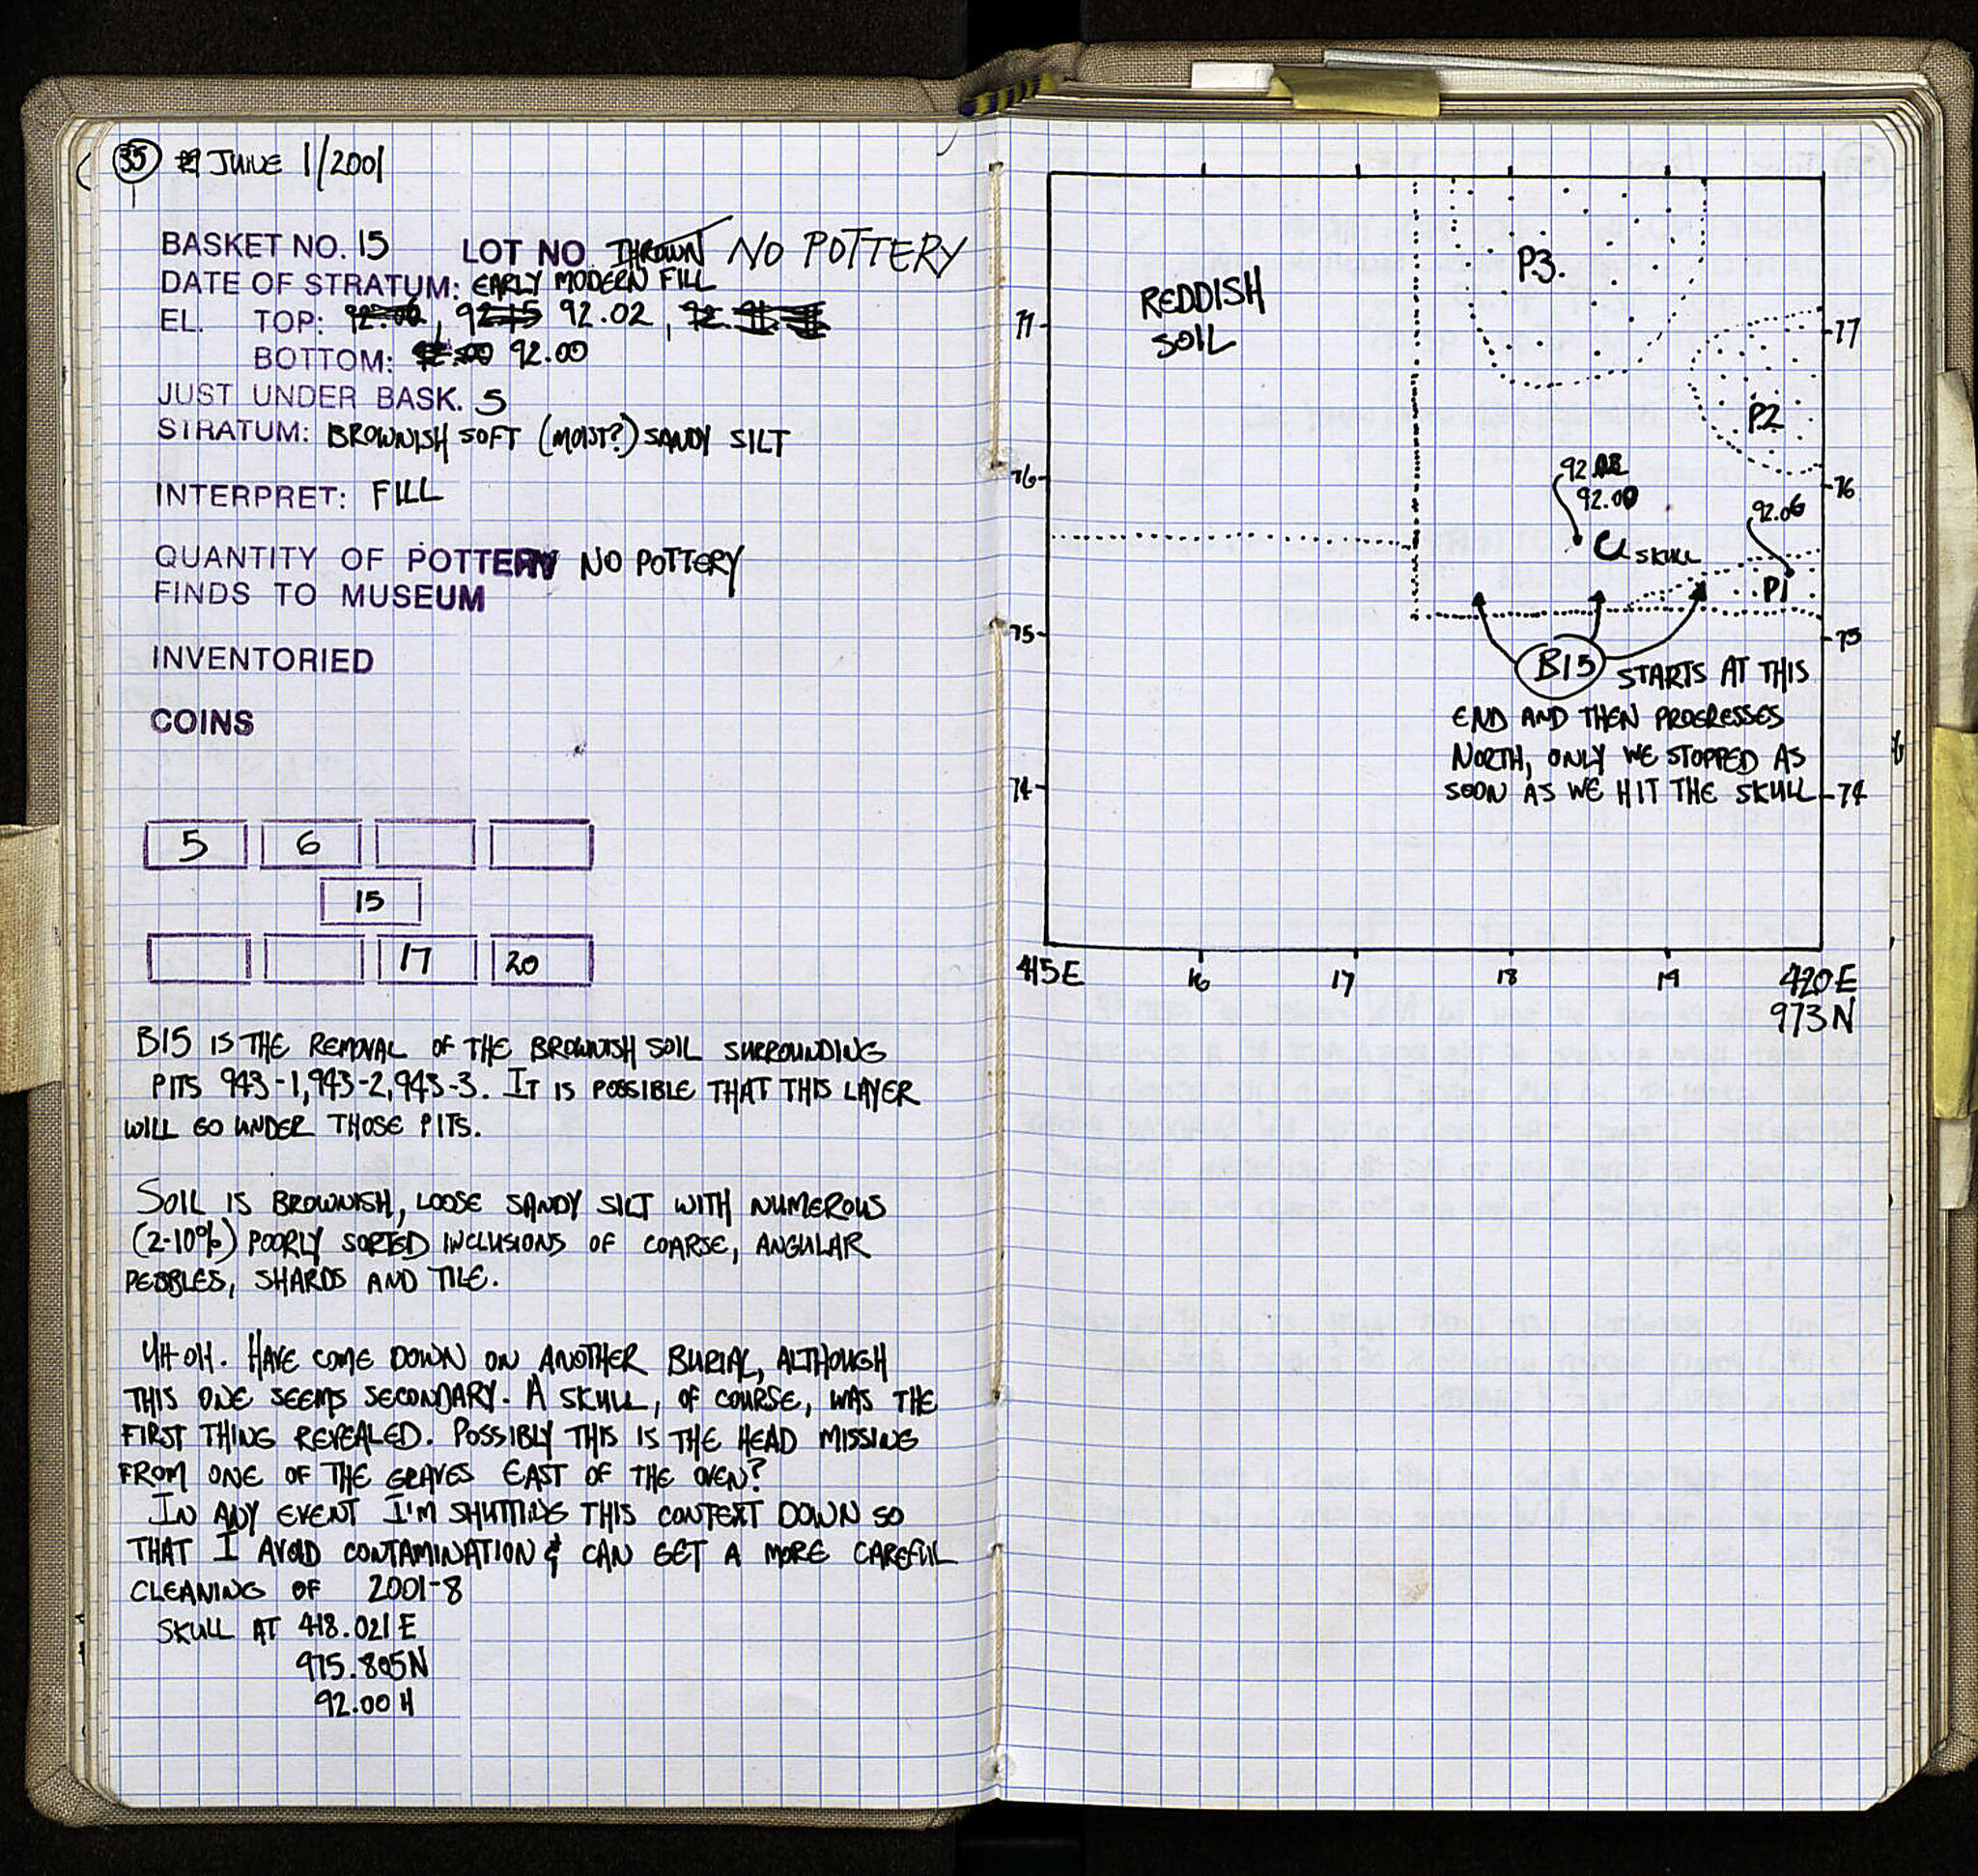 35 JUNE 1/2001
BASKET NO. 15 LOT NO. THROWN NO POTTERY
DATE OF STRATUM: EARLY MODERN FILL
EL. TOP: 92.02
BOTTOM: 92.00
JUST UNDER BASK. 5
STRATUM: BROWNISH SOFT (MOIST?) SANDY SILT
INTERPRET: FILL
QUANTITY OF POTTERY NO POTTERY
FINDS TO MUSEUM
INVENTORIED
COINS
5 6
15
17 20
B15 IS THE REMOVAL OF THE BROWNISH SOIL SURROUNDING
PITS 943-1, 943-2, 943-3. IT IS POSSIBLE THAT THIS LAYER
WILL GO UNDER THOSE PITS.
SOIL IS BROWNISH, LOOSE SANDY SILT WITH NUMEROUS
(2-10%) POORLY SORTED INCLUSIONS OF COARSE, ANGULAR
PEBBLES, SHARDS AND TILE.
UH OH. HAVE COME DOWN ON ANOTHER BURIAL, ALTHOUGH
THIS ONE SEEMS SECONDARY. A SKULL, OF COURSE, WAS THE
FIRST THING REVEALED. POSSIBLY THIS IS THE HEAD MISSING
FROM ONE OF THE GRAVES EAST OF THE OVEN?
IN ANY EVENT I'M SHUTTING THIS CONTEXT DOWN SO
THAT I AVOID CONTAMINATION & CAN GET A MORE CAREFUL
CLEANING OF 2001-8
SKULL AT 418.021 E
975.805 N
92.00 H
P3.
REDDISH
SOIL
77 77
P2
76 76
92.00
92.06
SKULL
P1
75 75
B15 STARTS AT THIS
END AND THEN PROGRESSES
NORTH, ONLY WE STOPPED AS
SOON AS WE HIT THE SKULL
74 74
415E 16 17 18 19 420E
973N